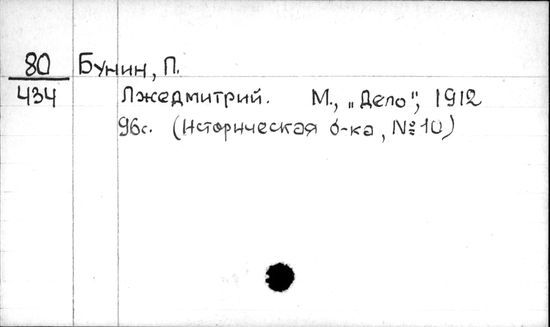 80 Бунин, П.
434 Лжедмитрий. М., „Дело", 1912
96с. (Историческая б-ка, №10)